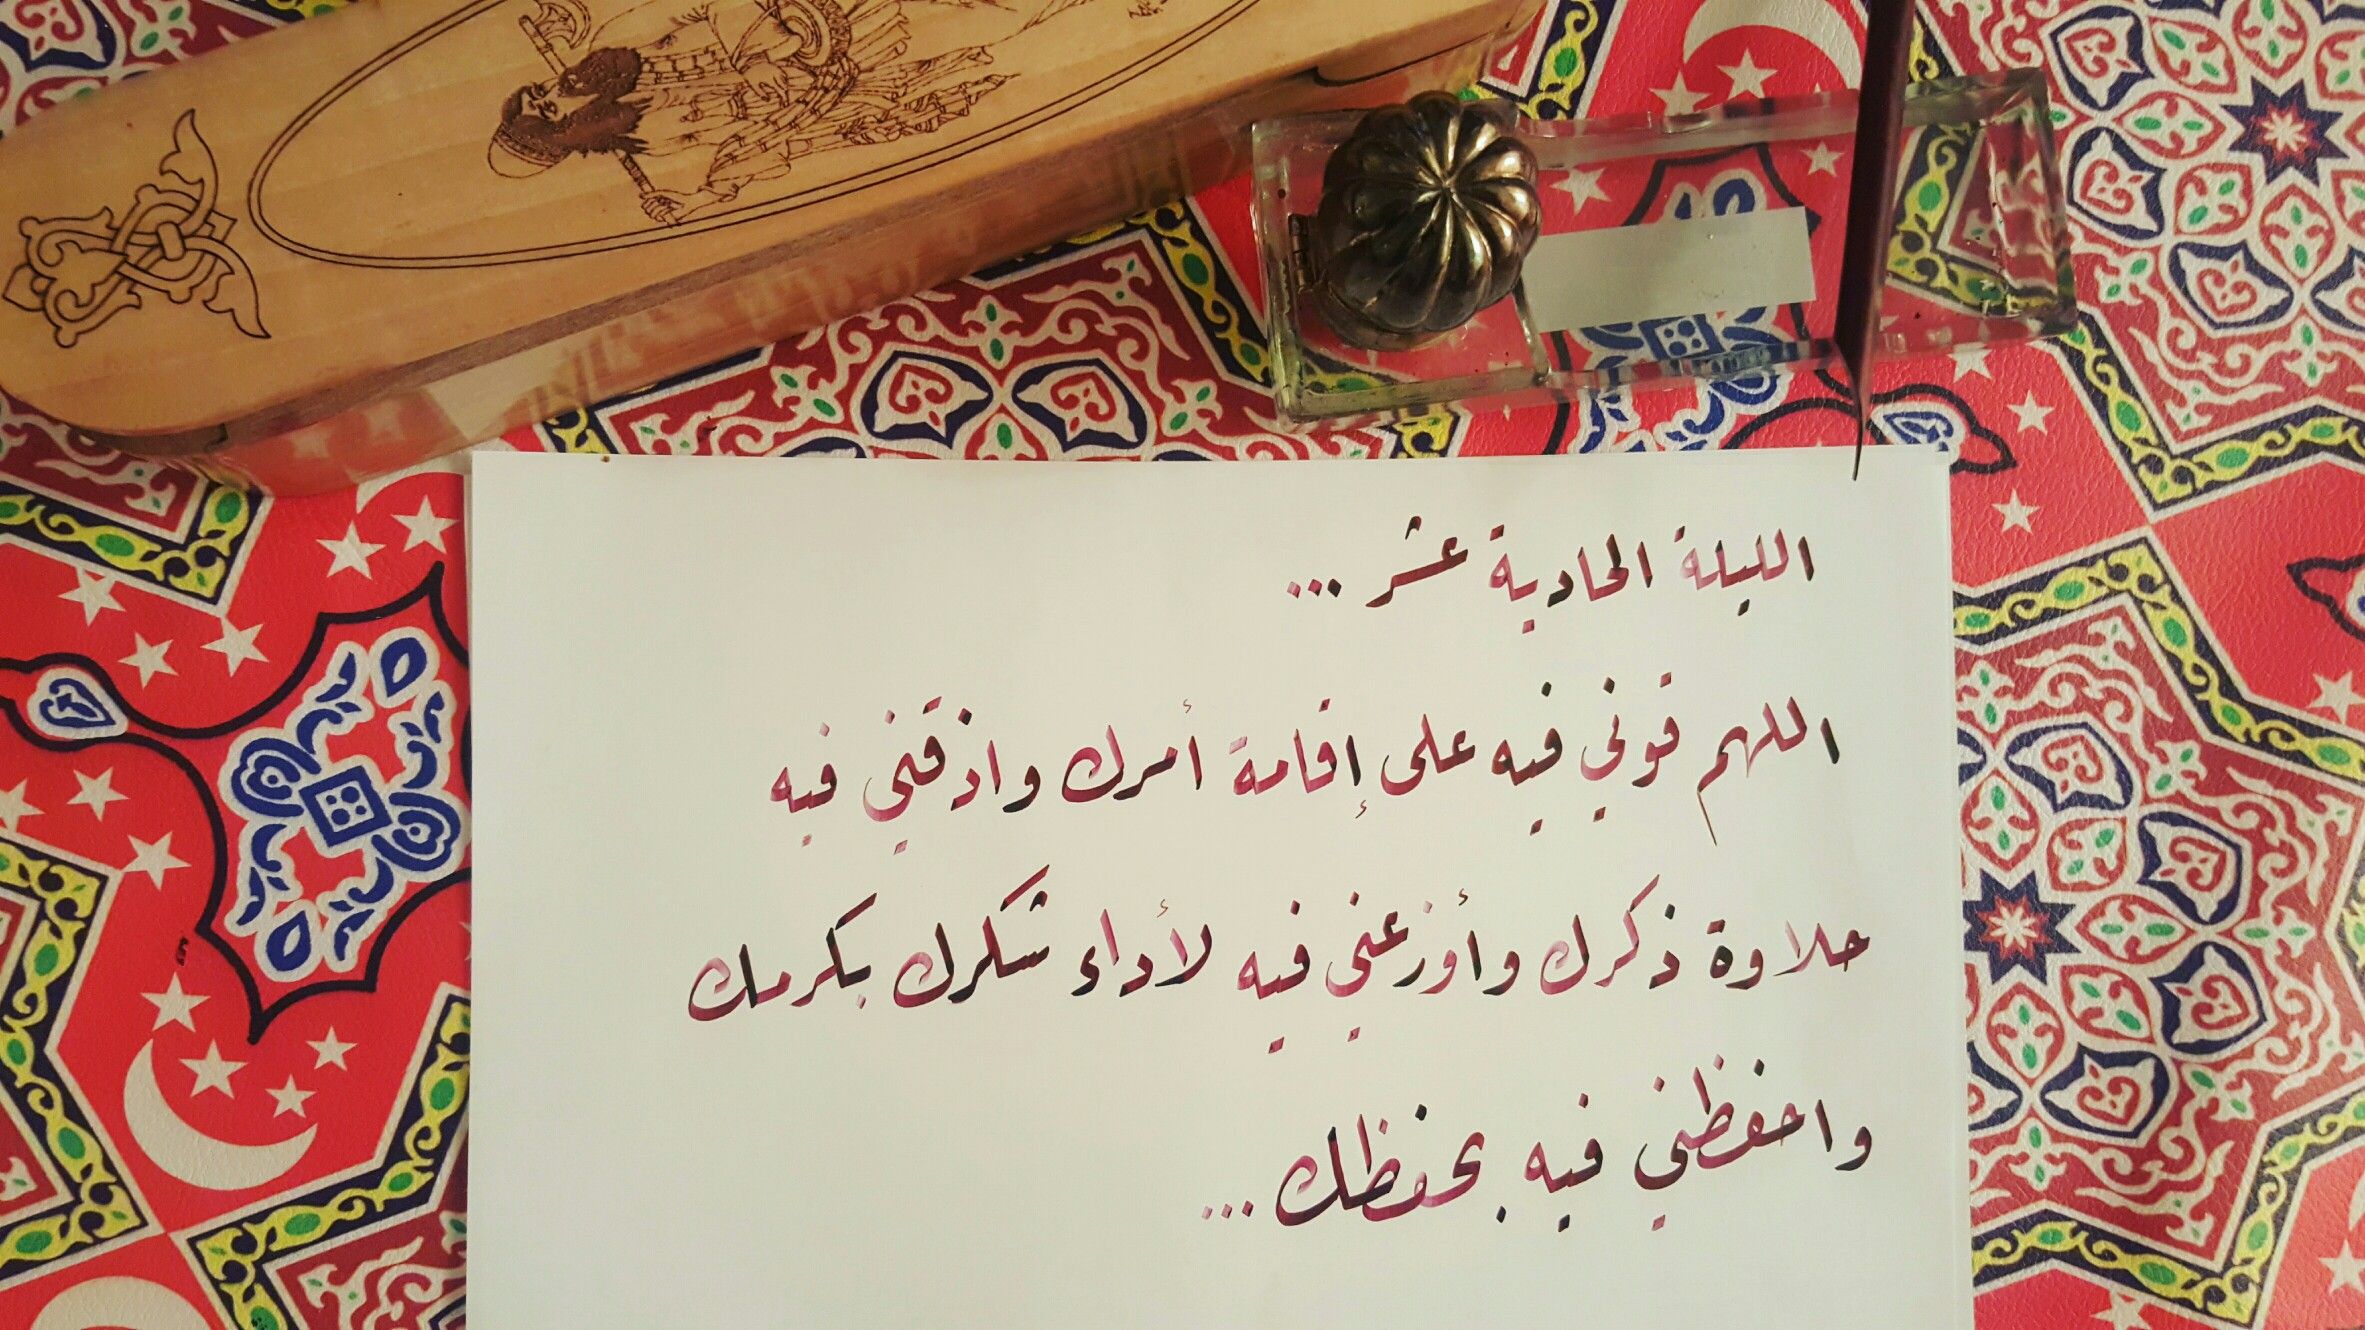 الليلة الحادية عشر ...
اللهم قوني فيه على إقامة أمرك واذقني فيه
حلاوة ذكرك وأوزعني فيه لأداء شكرك بكرمك
واحفظني فيه بحفظك ...